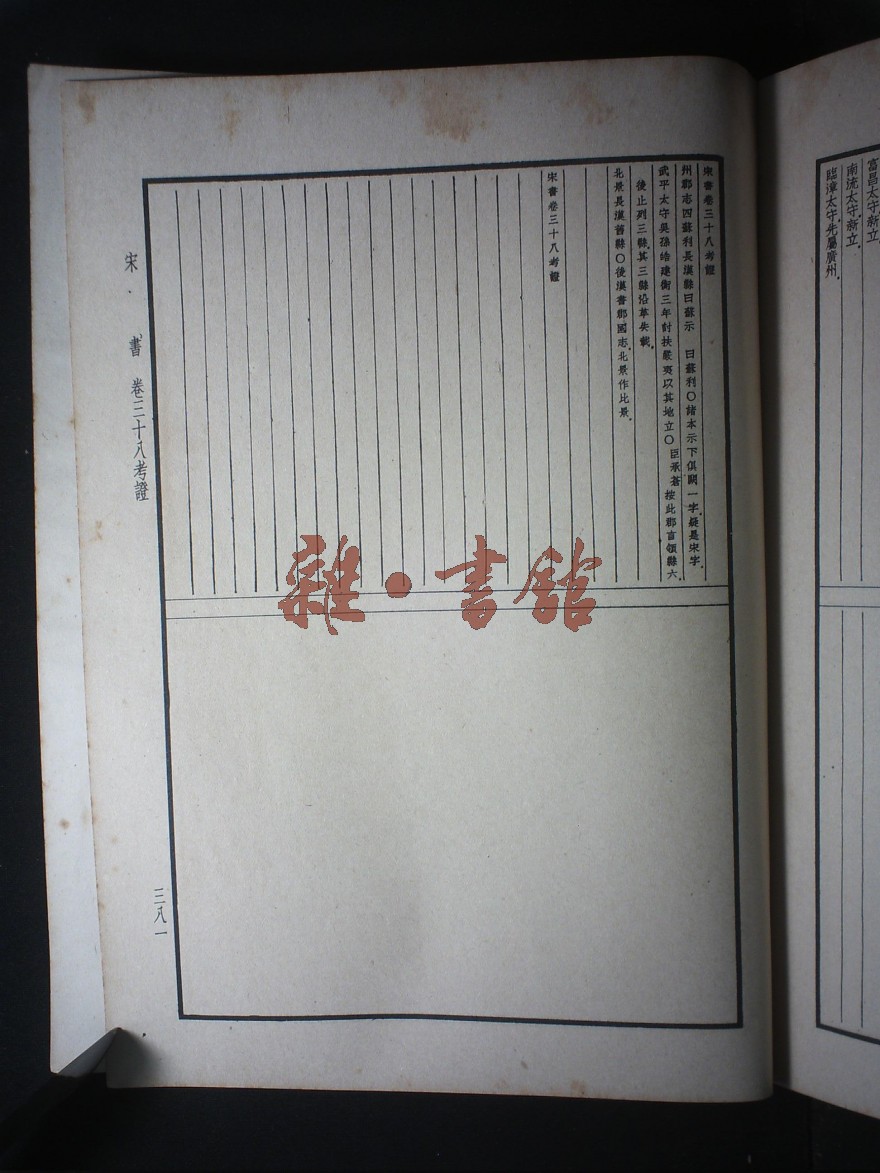 富昌太守新立
南流太守新立
臨漳太守先屬廣州
宋書卷三十八考證
州郡志四蘇利長漢縣曰蘇示　曰蘇利〇諸本示下俱闕一字疑是宋字
武平太守吳孫皓建衡三年討扶嚴夷以其地立〇臣承蒼按此郡言領縣六
後止列三縣其三縣沿革失載
北景長漢舊縣〇後漢書郡國志北景作比景
宋書卷三十八考證
宋　書　卷三十八考證
三八一
雜·書館